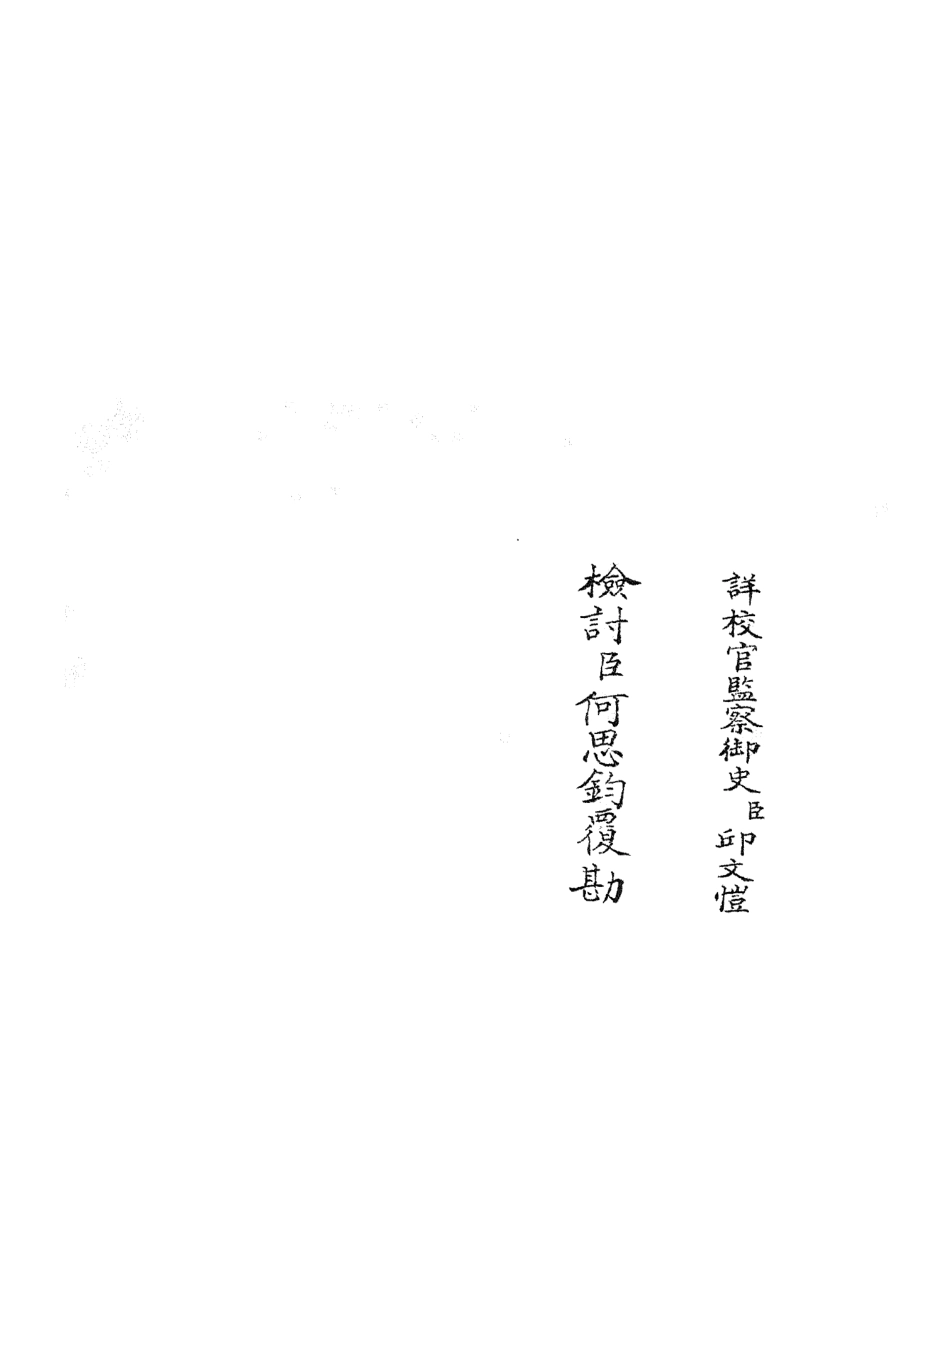 詳校官監察御史臣邱文愷
檢討臣何思鈞覆勘